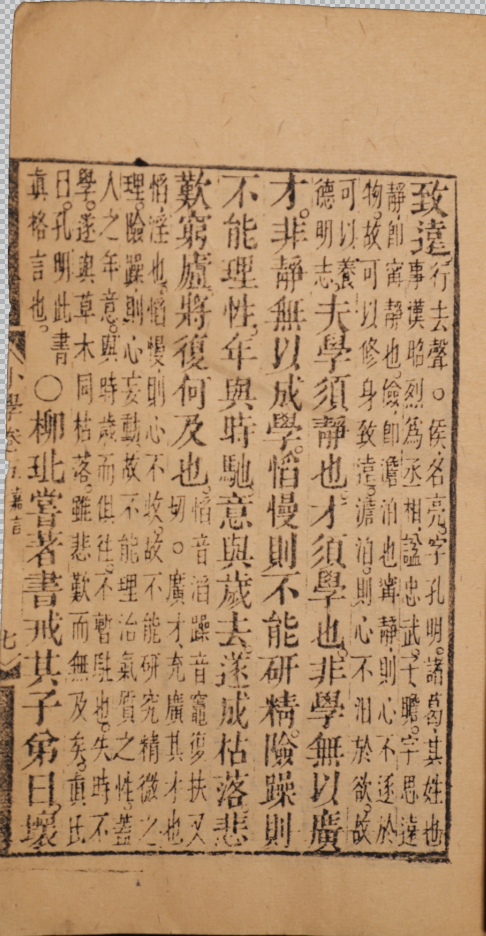 致遠。行去聲。○侯名亮字孔明。諸葛其姓也
事漢昭烈為丞相諡忠武。子瞻字思遠
靜卽甯靜也。儉卽澹泊也甯靜則心不逐於
物。故可以修身致遠。澹泊則心不汩於欲。故
可以養
德明志。夫學須靜也。才須學也。非學無以廣
才。非靜無以成學。慆慢則不能研精。險躁則
不能理性。年與時馳。意與歲去。遂成枯落悲
歎窮廬將復何及也。慆音滔躁音竈復扶又
切。○廣才充廣其才也
慆淫也。慆慢則心不收。故不能研究精微之
理。險躁則心妄動故不能理治氣質之性。蓋
人之年意。與時歲而俱往。不暫駐也。失時不
學。遂與草木同枯落。雖悲歎而無及矣。真氏
曰。孔明此書
真格言也。○柳玭嘗著書戒其子弟曰。壞
小學卷五 嘉言 七